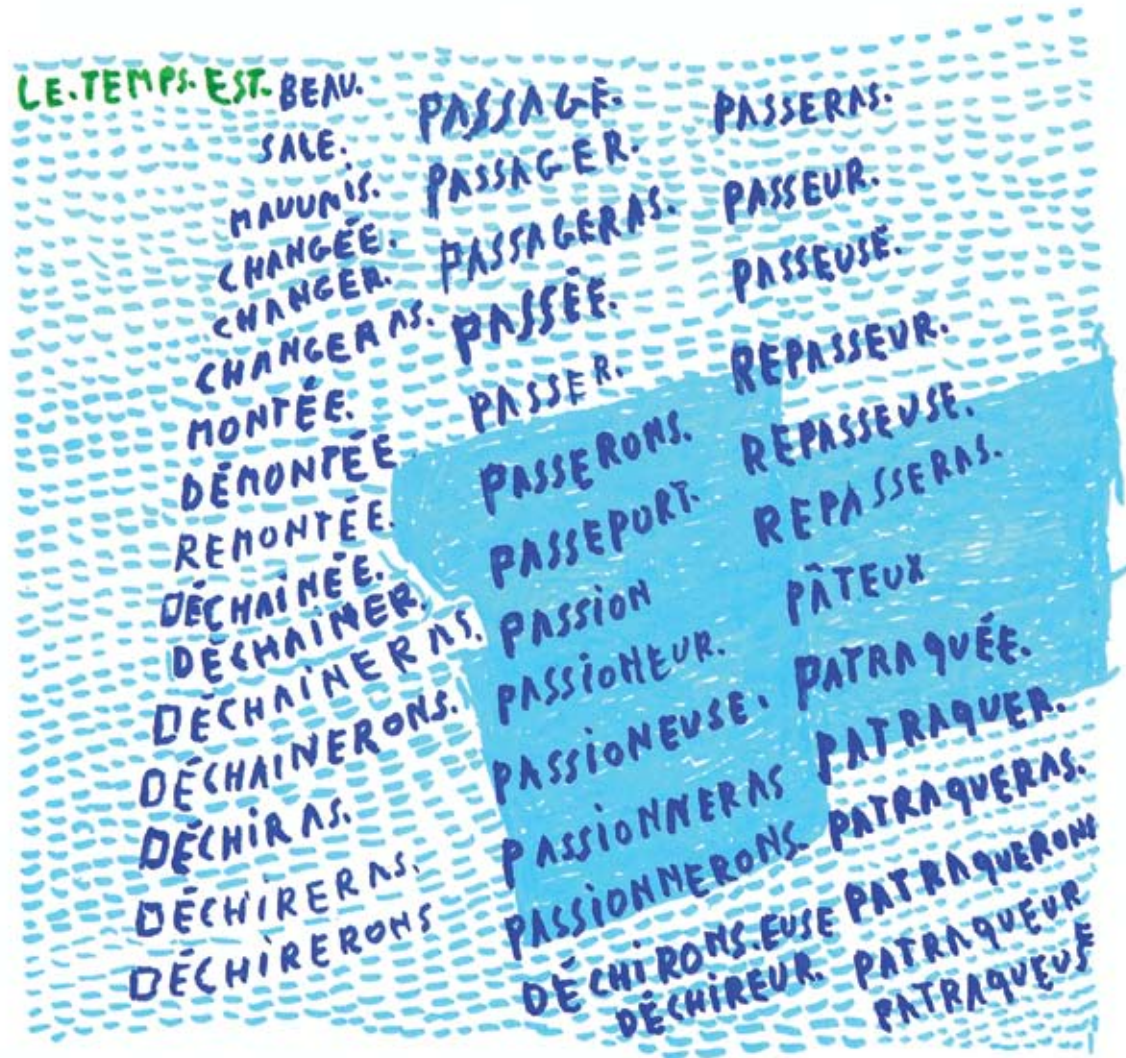 LE.TEMPS.EST. BEAU.
SALE.
MAUVAIS.
CHANGÉE.
CHANGER.
CHANGERAS.
MONTÉE.
DÉMONTÉE.
REMONTÉE.
DÉCHAINÉE.
DÉCHAINER.
DÉCHAINERAS.
DÉCHAINERONS.
DÉCHIRAS.
DÉCHIRERAS.
DÉCHIRERONS
PASSAGÉ.
PASSAGER.
PASSAGERAS.
PASSÉE.
PASSER.
PASSERONS.
PASSEPORT.
PASSION
PASSIONEUR.
PASSIONEUSE.
PASSIONNERAS
PASSIONNERONS.
DÉCHIRONS.EUSE
DÉCHIREUR.
PASSERAS.
PASSEUR.
PASSEUSE.
REPASSEUR.
REPASSEUSE.
REPASSERAS.
PÂTEUX
PATRAQUÉE.
PATRAQUER.
PATRAQUERAS.
PATRAQUERONS
PATRAQUEUR
PATRAQUEUSE